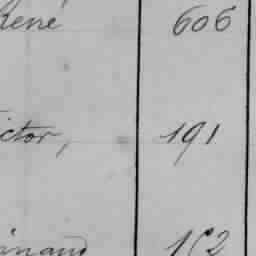 René 606
ictor, 191
inand 152